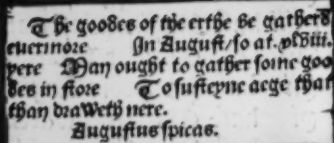 The goodes of the erthe be gatherd
euermore In August/so at .xlviii.
yere Man ought to gather some goo
des in store To susteyne aege that
than draweth nere.
Augustus spicas.